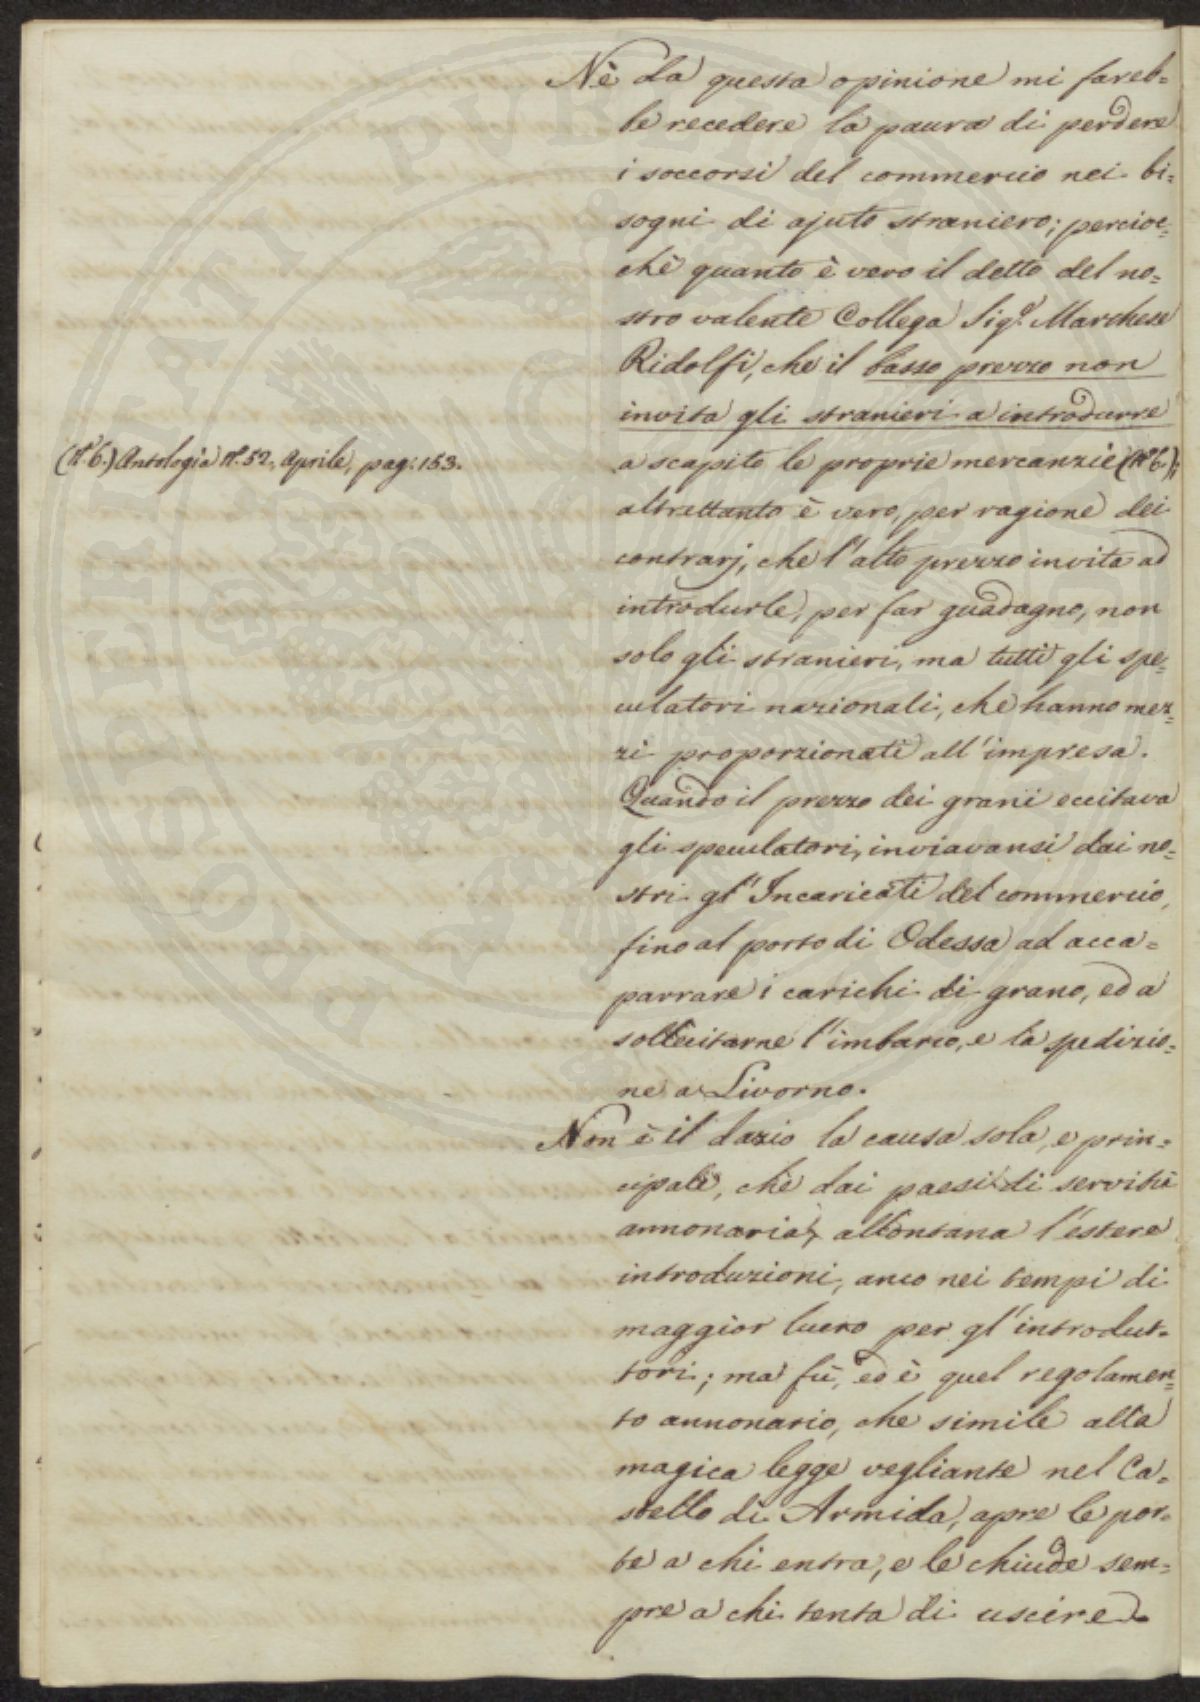 Nè da questa opinione mi fareb=
be recedere la paura di perdere
i soccorsi del commercio nei bi=
sogni di ajuto straniero; percioc=
chè quanto è vero il detto del no=
stro valente Collega Sigr. Marchese
Ridolfi, che il basso prezzo non
invita gli stranieri a introdurre
(N°. 6.) Antologia N°. 52, Aprile, pag: 153.
a scapito le proprie mercanzie (N° 6.);
altrettanto è vero, per ragione dei
contrarj, che l'alto prezzo invita ad
introdurle, per far guadagno, non
solo gli stranieri, ma tutti gli spe=
culatori nazionali, che hanno mez=
zi proporzionati all'impresa.
Quando il prezzo dei grani eccitava
gli speculatori, inviavansi dai no=
stri gl'Incaricati del commercio,
fino al porto di Odessa ad acca=
parrare i carichi di grano, ed a
sollecitarne l'imbarco, e la spedizio=
ne a Livorno.
Non è il dazio la causa sola, e prin=
cipale, che dai paesi di servitù
annonaria, allontana l'estere
introduzioni, anco nei tempi di
maggior lucro per gl'introdut=
tori; ma fù, ed è quel regolamen=
to annonario, che simile alla
magica legge vegliante nel Ca=
stello di Armida, apre le por=
te a chi entra, e le chiude sem=
pre a chi tenta di uscire.
POSPERITATI PUBLICAE AUGENDAE